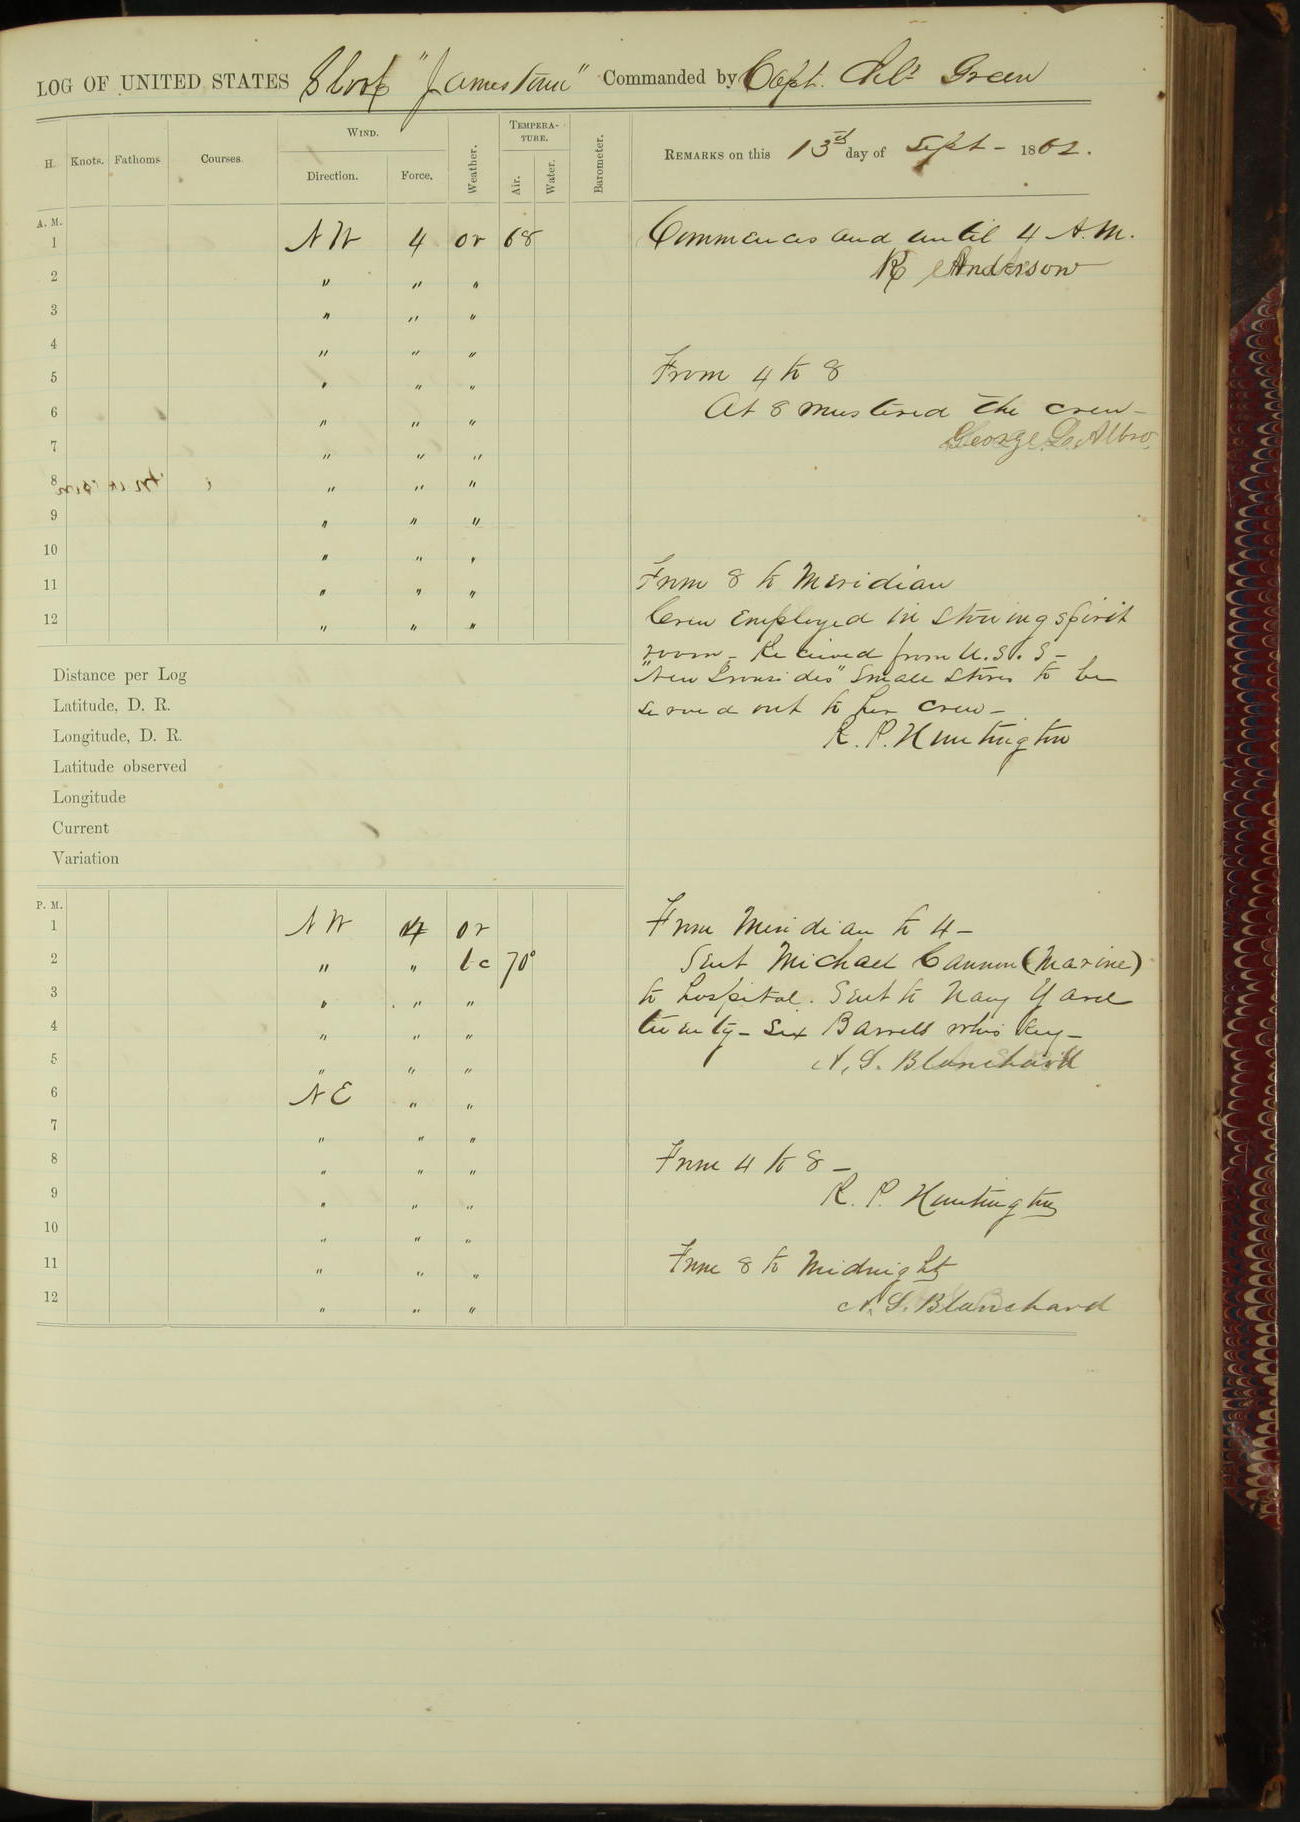 LOG OF UNITED STATES Sloop "Jamestown" Commanded by Capt. Green
H. Knots. Fathoms Courses. WIND. Direction. Force. Weather. TEMPERATURE. Air. Water. Barometer. REMARKS on this 13th day of Sept - 1862.
A. M.
1 NW 4 or 68 Commences and until 4 A.M.
R Anderson
2 " " "
3 " " "
4 " " "
5 " " "
6 " " "
7 " " "
8 " " "
9 " " "
10 " " "
11 " " "
12 " " "
From 4 to 8
At 8 mustered the crew -
George L. Albro,
From 8 to Meridian
Crew employed in stowing spirit
room - Recieved from U.S.S -
"New Ironsides" small stores to be
served out to her crew -
R. P. Huntington
Distance per Log
Latitude, D. R.
Longitude, D. R.
Latitude observed
Longitude
Current
Variation
P. M.
1 NW 4 or
2 " " bc 70°
3 " " "
4 " " "
5 " " "
6 NE " "
7 " " "
8 " " "
9 " " "
10 " " "
11 " " "
12 " " "
From Meridian to 4 -
Sent Michael Cannon (Marine)
to hospital. Sent to Navy Yard
twenty - six Barrells whiskey -
N. S. Blanchard
From 4 to 8 -
R. P. Huntington
From 8 to Midnight
N. S. Blanchard